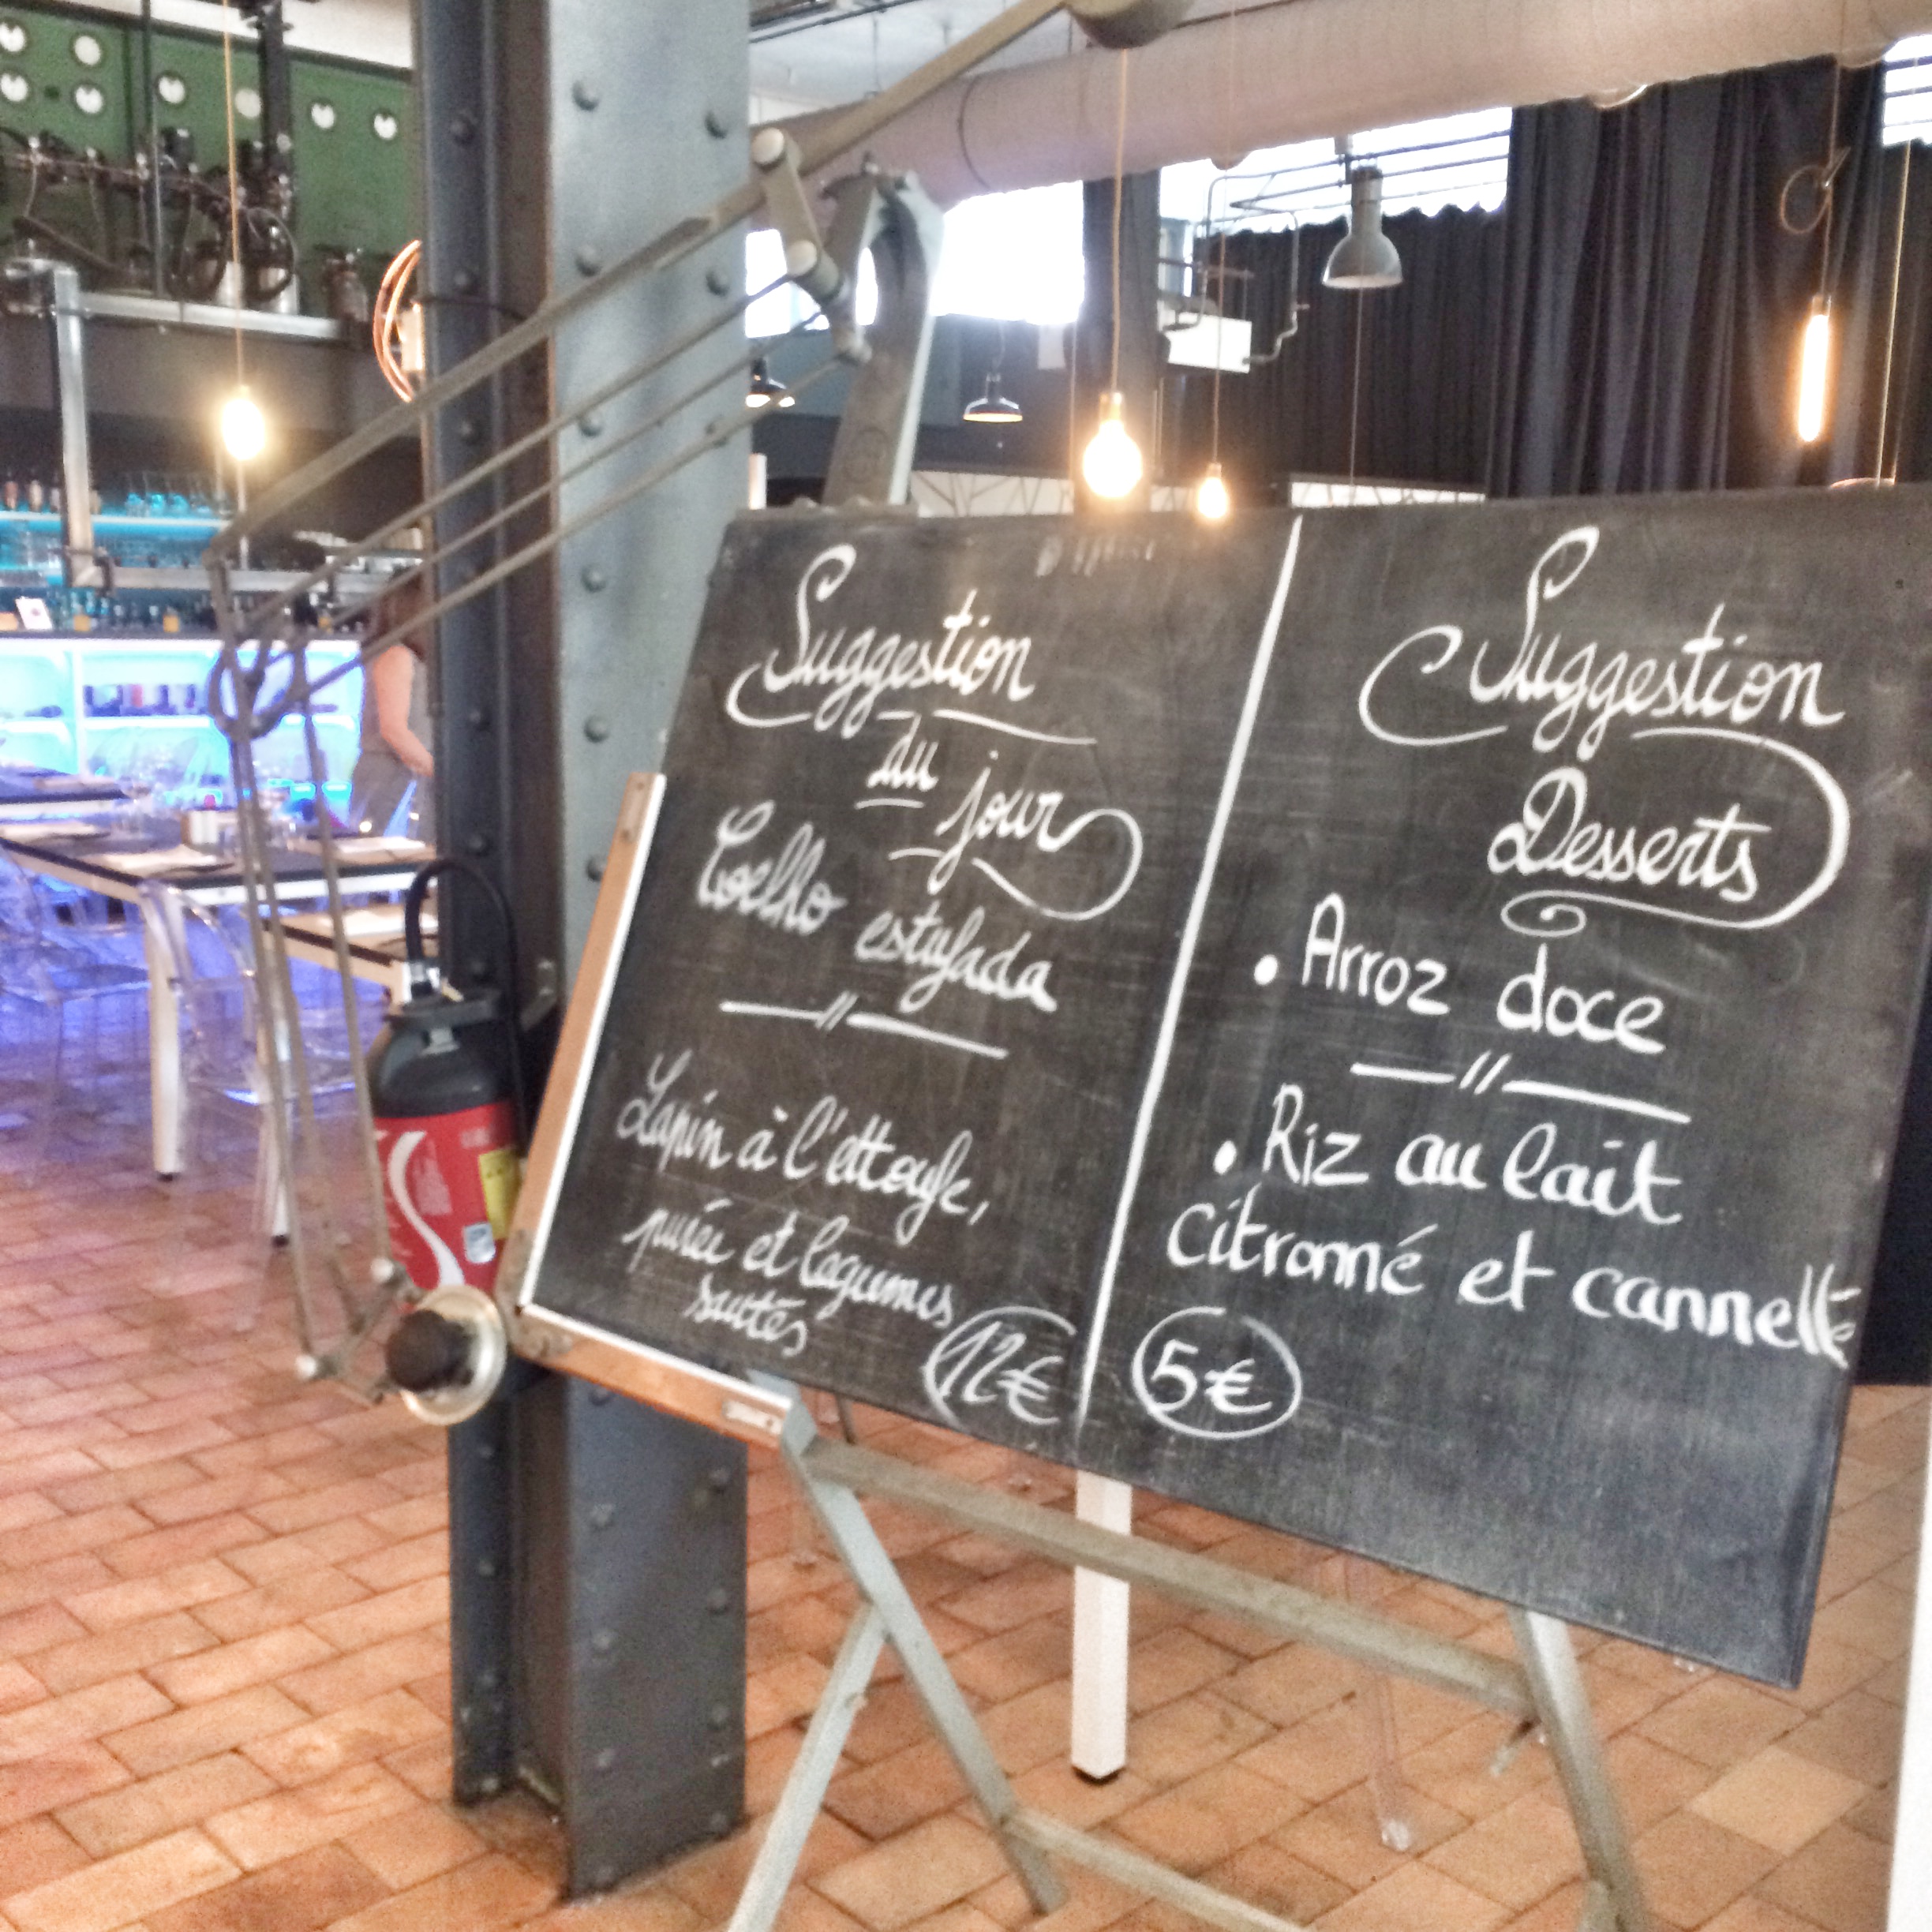 Suggestion
du
jour
Coelho estufada
Lapin à l'ettoufe,
purée et legumes
sautés
12€
Suggestion
Desserts
• Arroz doce
• Riz au lait
citronné et cannelle
5€